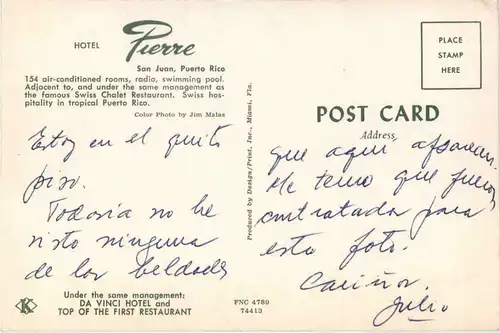 HOTEL Pierre
San Juan, Puerto Rico
154 air-conditioned rooms, radio, swimming pool.
Adjacent to, and under the same management as
the famous Swiss Chalet Restaurant. Swiss hos-
pitality in tropical Puerto Rico.
Color Photo by Jim Malas
Estoy en el quinto
piso.
Todavía no he
visto ninguna
de las beldades
Under the same management:
DA VINCI HOTEL and
TOP OF THE FIRST RESTAURANT
K
Produced by Design/Print, Inc., Miami, Fla.
FNC 4789
74413
PLACE
STAMP
HERE
POST CARD
Address
que aquí aparecen.
Me temo que fueron
contratadas para
esta foto.
Cariños,
Julio